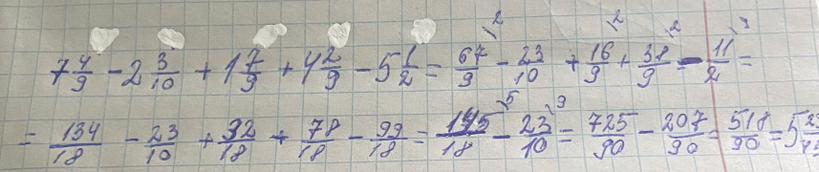 7 4/9 - 2 3/10 + 1 7/9 + 4 2/9 - 5 1/2 = 67/9 \2 - 23/10 + 16/9 \2 + 38/9 \2 - 11/2 \9 =
= 134/18 - 23/10 + 32/18 + 78/18 - 99/18 = 145/18 \5 - 23/10 \9 = 725/90 - 207/90 = 518/90 = 5